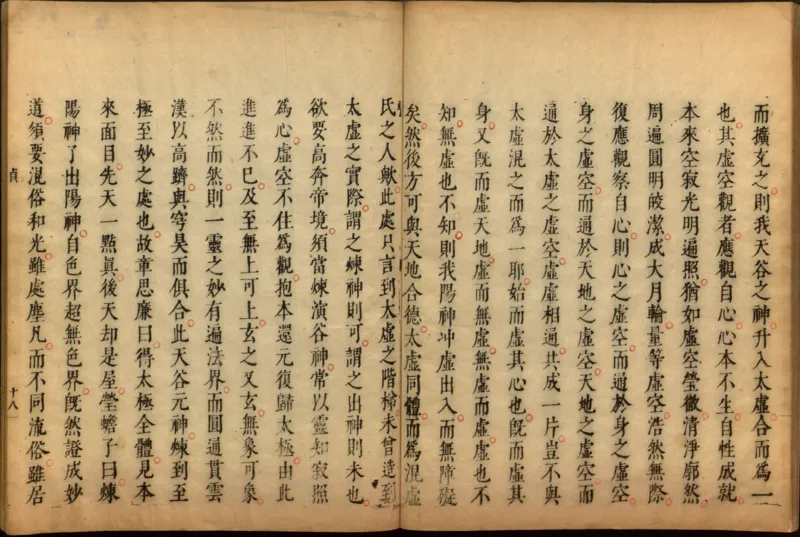 而擴充之則我天谷之神升入太虛合而為一
也其虛空觀者應觀自心心本不生自性成就
本來空寂光明遍照猶如虛空瑩徹清淨廓然
周遍圓明皎潔成大月輪量等虛空浩然無際
復應觀察自心則心之虛空而通於身之虛空
身之虛空而通於天地之虛空天地之虛空而
通於太虛之虛空虛虛相通共成一片豈不與
太虛混之而為一耶始而虛其心也旣而虛其
身又旣而虛天地虛而無虛無虛而虛虛也不
知無虛也不知則我陽神冲虛出入而無障礙
矣然後方可與天地合德太虛同體而為混虛
氏之人歟此處只言到太虛之階梯未曾造到
太虛之實際謂之煉神則可謂之出神則未也
欲要高奔帝境須當煉演谷神常以靈知寂照
為心虛空不住為觀抱本還元復歸太極由此
進進不已及至無上可上玄之又玄無象可象
不然而然則一靈之妙有遍法界而圓通貫雲
漢以高躋與穹昊而俱合此天谷元神煉到至
極至妙之處也故章思廉曰得太極全體見本
來面目先天一點眞後天却是屋瑩蟾子曰煉
陽神了出陽神自色界超無色界旣然證成妙
道須要混俗和光雖處塵凡而不同流俗雖居
貞
十八